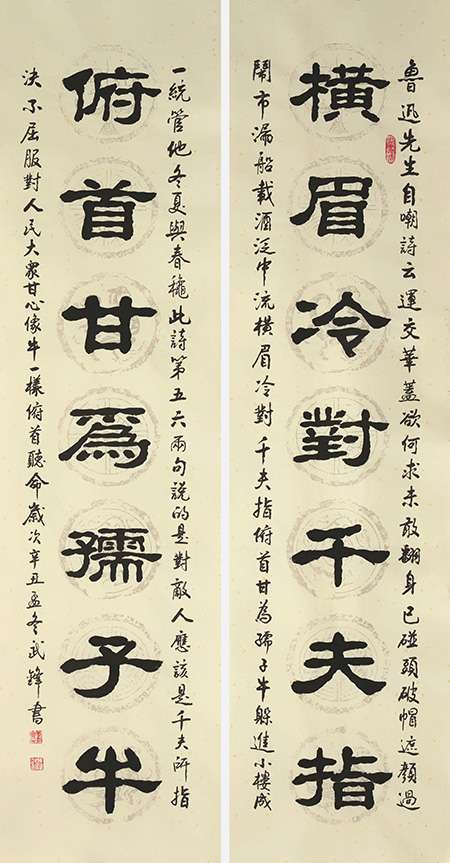 魯迅先生自嘲詩云運交華蓋欲何求未敢翻身已碰頭破帽遮顏過
橫眉冷對千夫指
鬧市漏船載酒泛中流橫眉冷對千夫指俯首甘為孺子牛躲進小樓成
一統管他冬夏與春穐此詩第五六兩句說的是對敵人應該是千夫所指
俯首甘爲孺子牛
決不屈服對人民大眾甘心像牛一樣俯首聽命歲次辛丑孟冬武鋒書